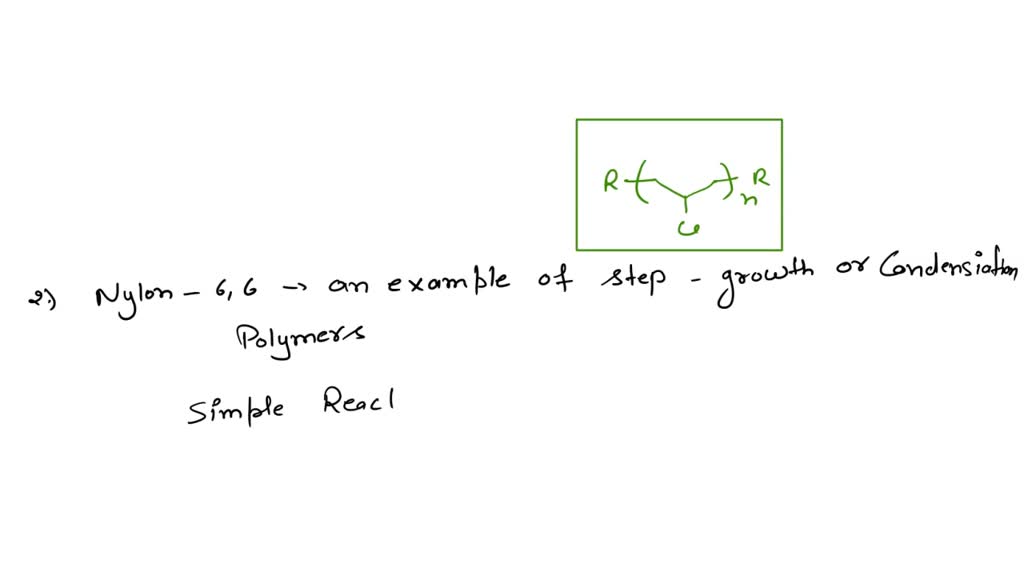 R ( ) n R
Cl
2) Nylon - 6,6 → an example of step - growth or Condensiation
Polymers
Simple Reac